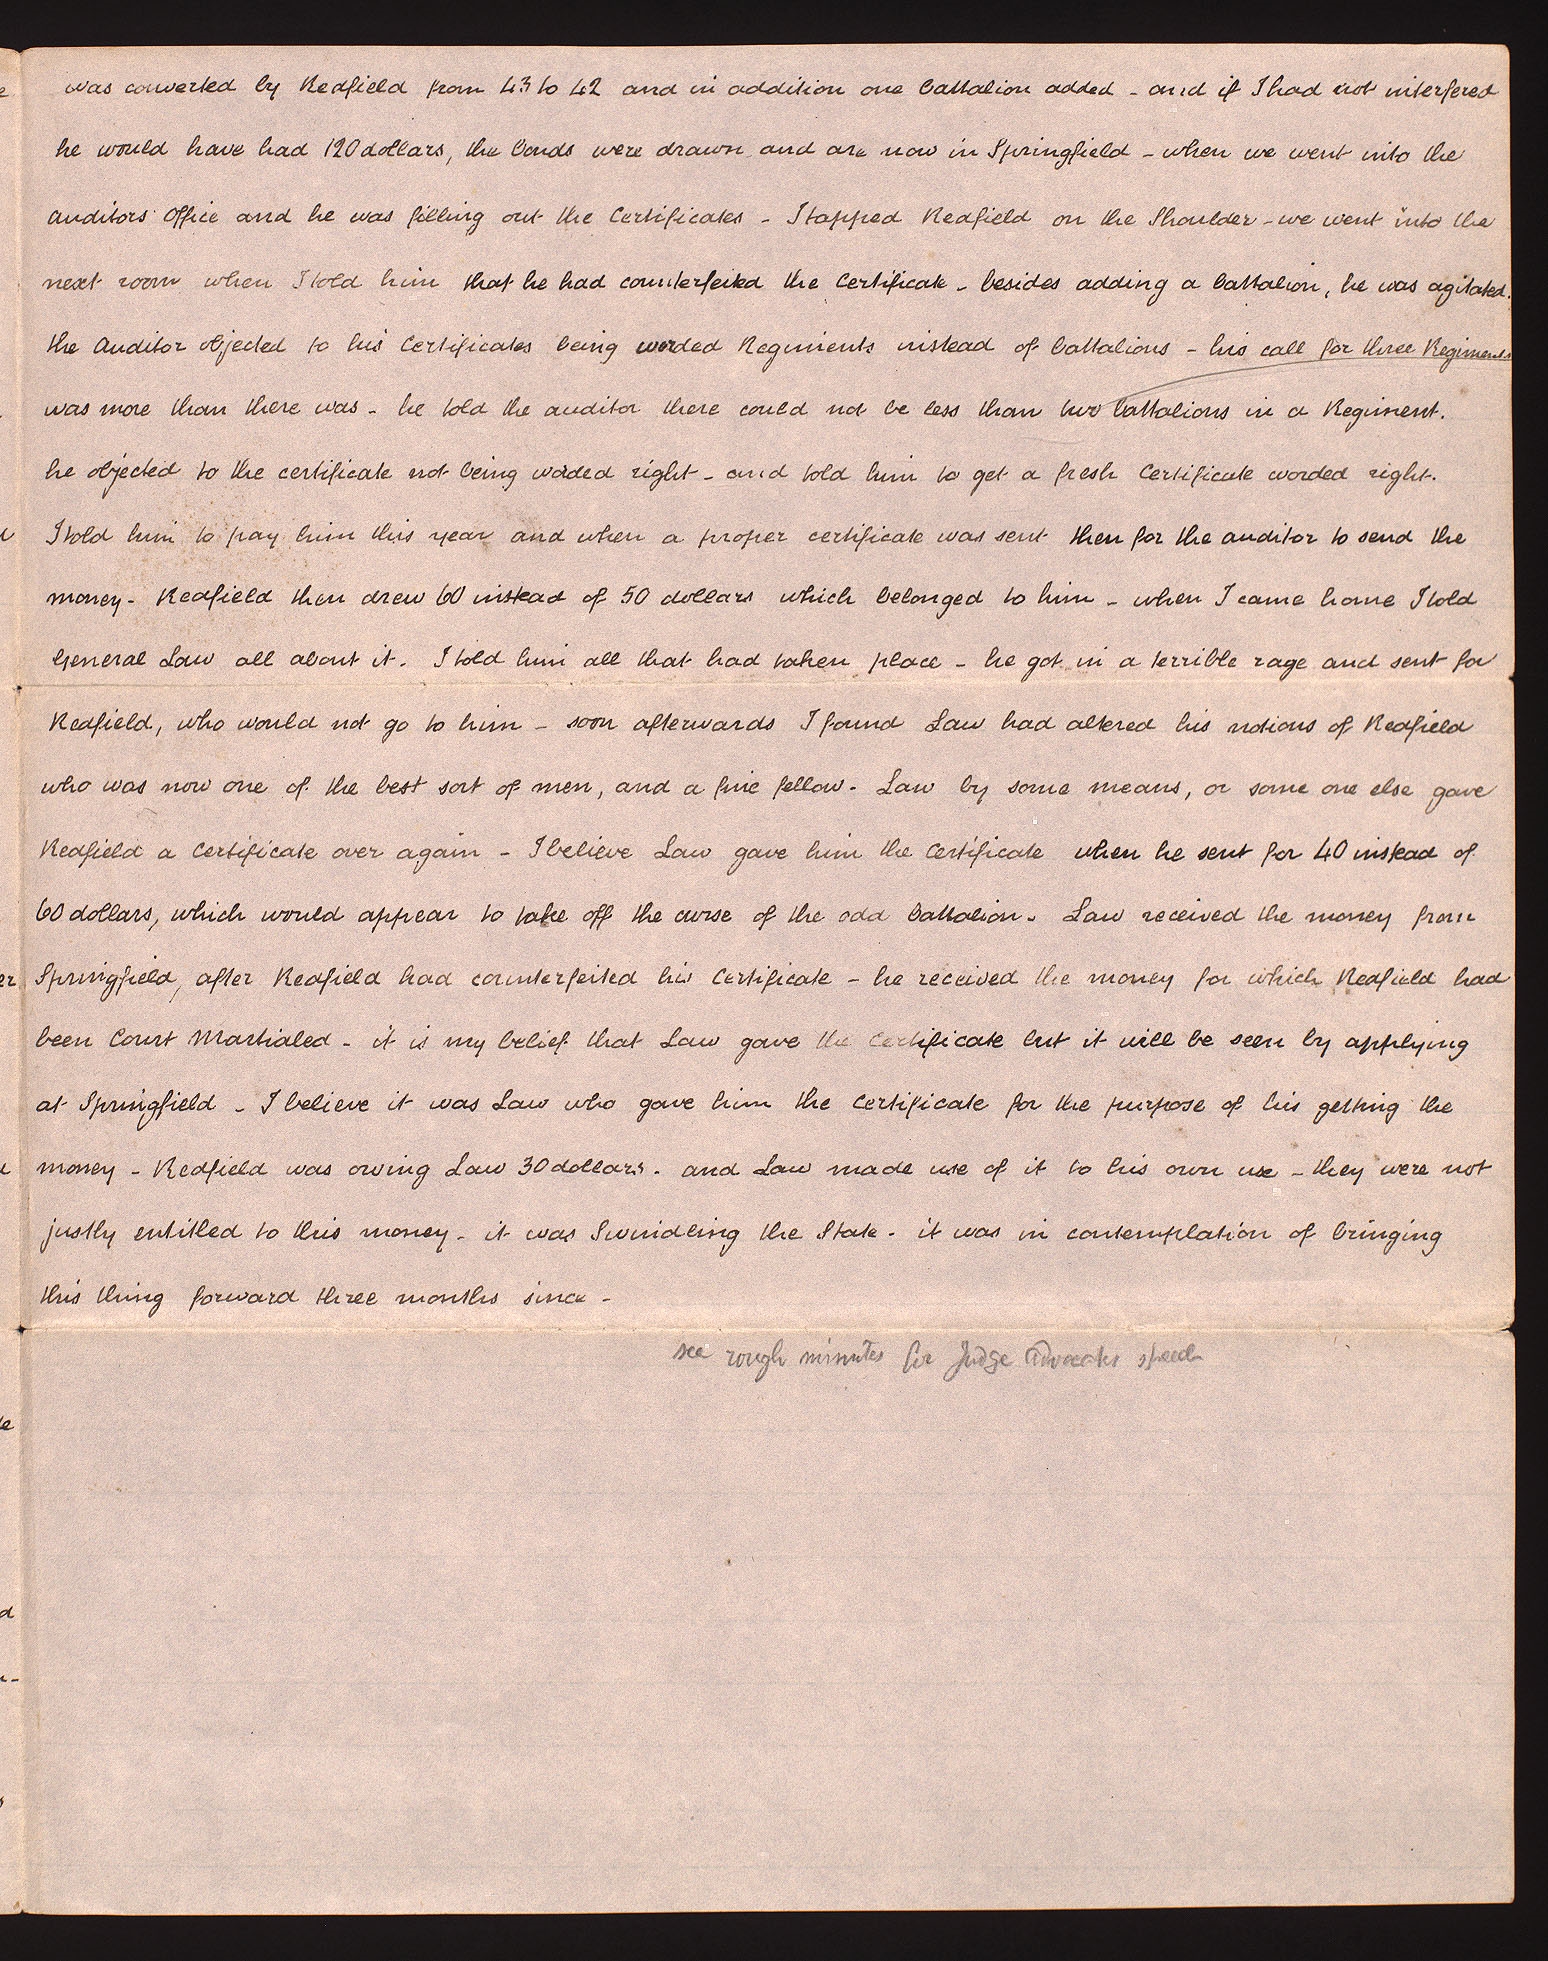 was converted by Redfield from 43 to 42 and in addition one battalion added - and if I had not interfered
he would have had 120 dollars, the bonds were drawn and are now in Springfield - when we went into the
auditors Office and he was filling out the Certificates - I tapped Redfield on the Shoulder - we went into the
next room when I told him that he had counterfeited the Certificate - besides adding a battalion, he was agitated.
the Auditor objected to his Certificates being worded Regiments instead of battalions - his call for three Regiments
was more than there was - he told the auditor there could not be less than two battalions in a Regiment.
he objected to the certificate not being worded right - and told him to get a fresh Certificate worded right.
I told him to pay him this year and when a proper certificate was sent then for the auditor to send the
money - Redfield then drew 60 instead of 50 dollars which belonged to him - when I came home I told
General Law all about it. I told him all that had taken place - he got in a terrible rage and sent for
Redfield, who would not go to him - soon afterwards I found Law had altered his notions of Redfield
who was now one of the best sort of men, and a fine fellow. Law by some means, or some one else gave
Redfield a Certificate over again - I believe Law gave him the Certificate when he sent for 40 instead of
60 dollars, which would appear to take off the curse of the odd battalion. Law received the money from
Springfield, after Redfield had counterfeited his Certificate - he received the money for which Redfield had
been Court Martialed - it is my belief that Law gave the Certificate but it will be seen by applying
at Springfield - I believe it was Law who gave him the Certificate for the purpose of his getting the
money - Redfield was owing Law 30 dollars. and Law made use of it to his own use - they were not
justly entitled to this money - it was Swindling the State - it was in contemplation of bringing
this thing forward three months since -
see rough minutes for Judge Advocates speech